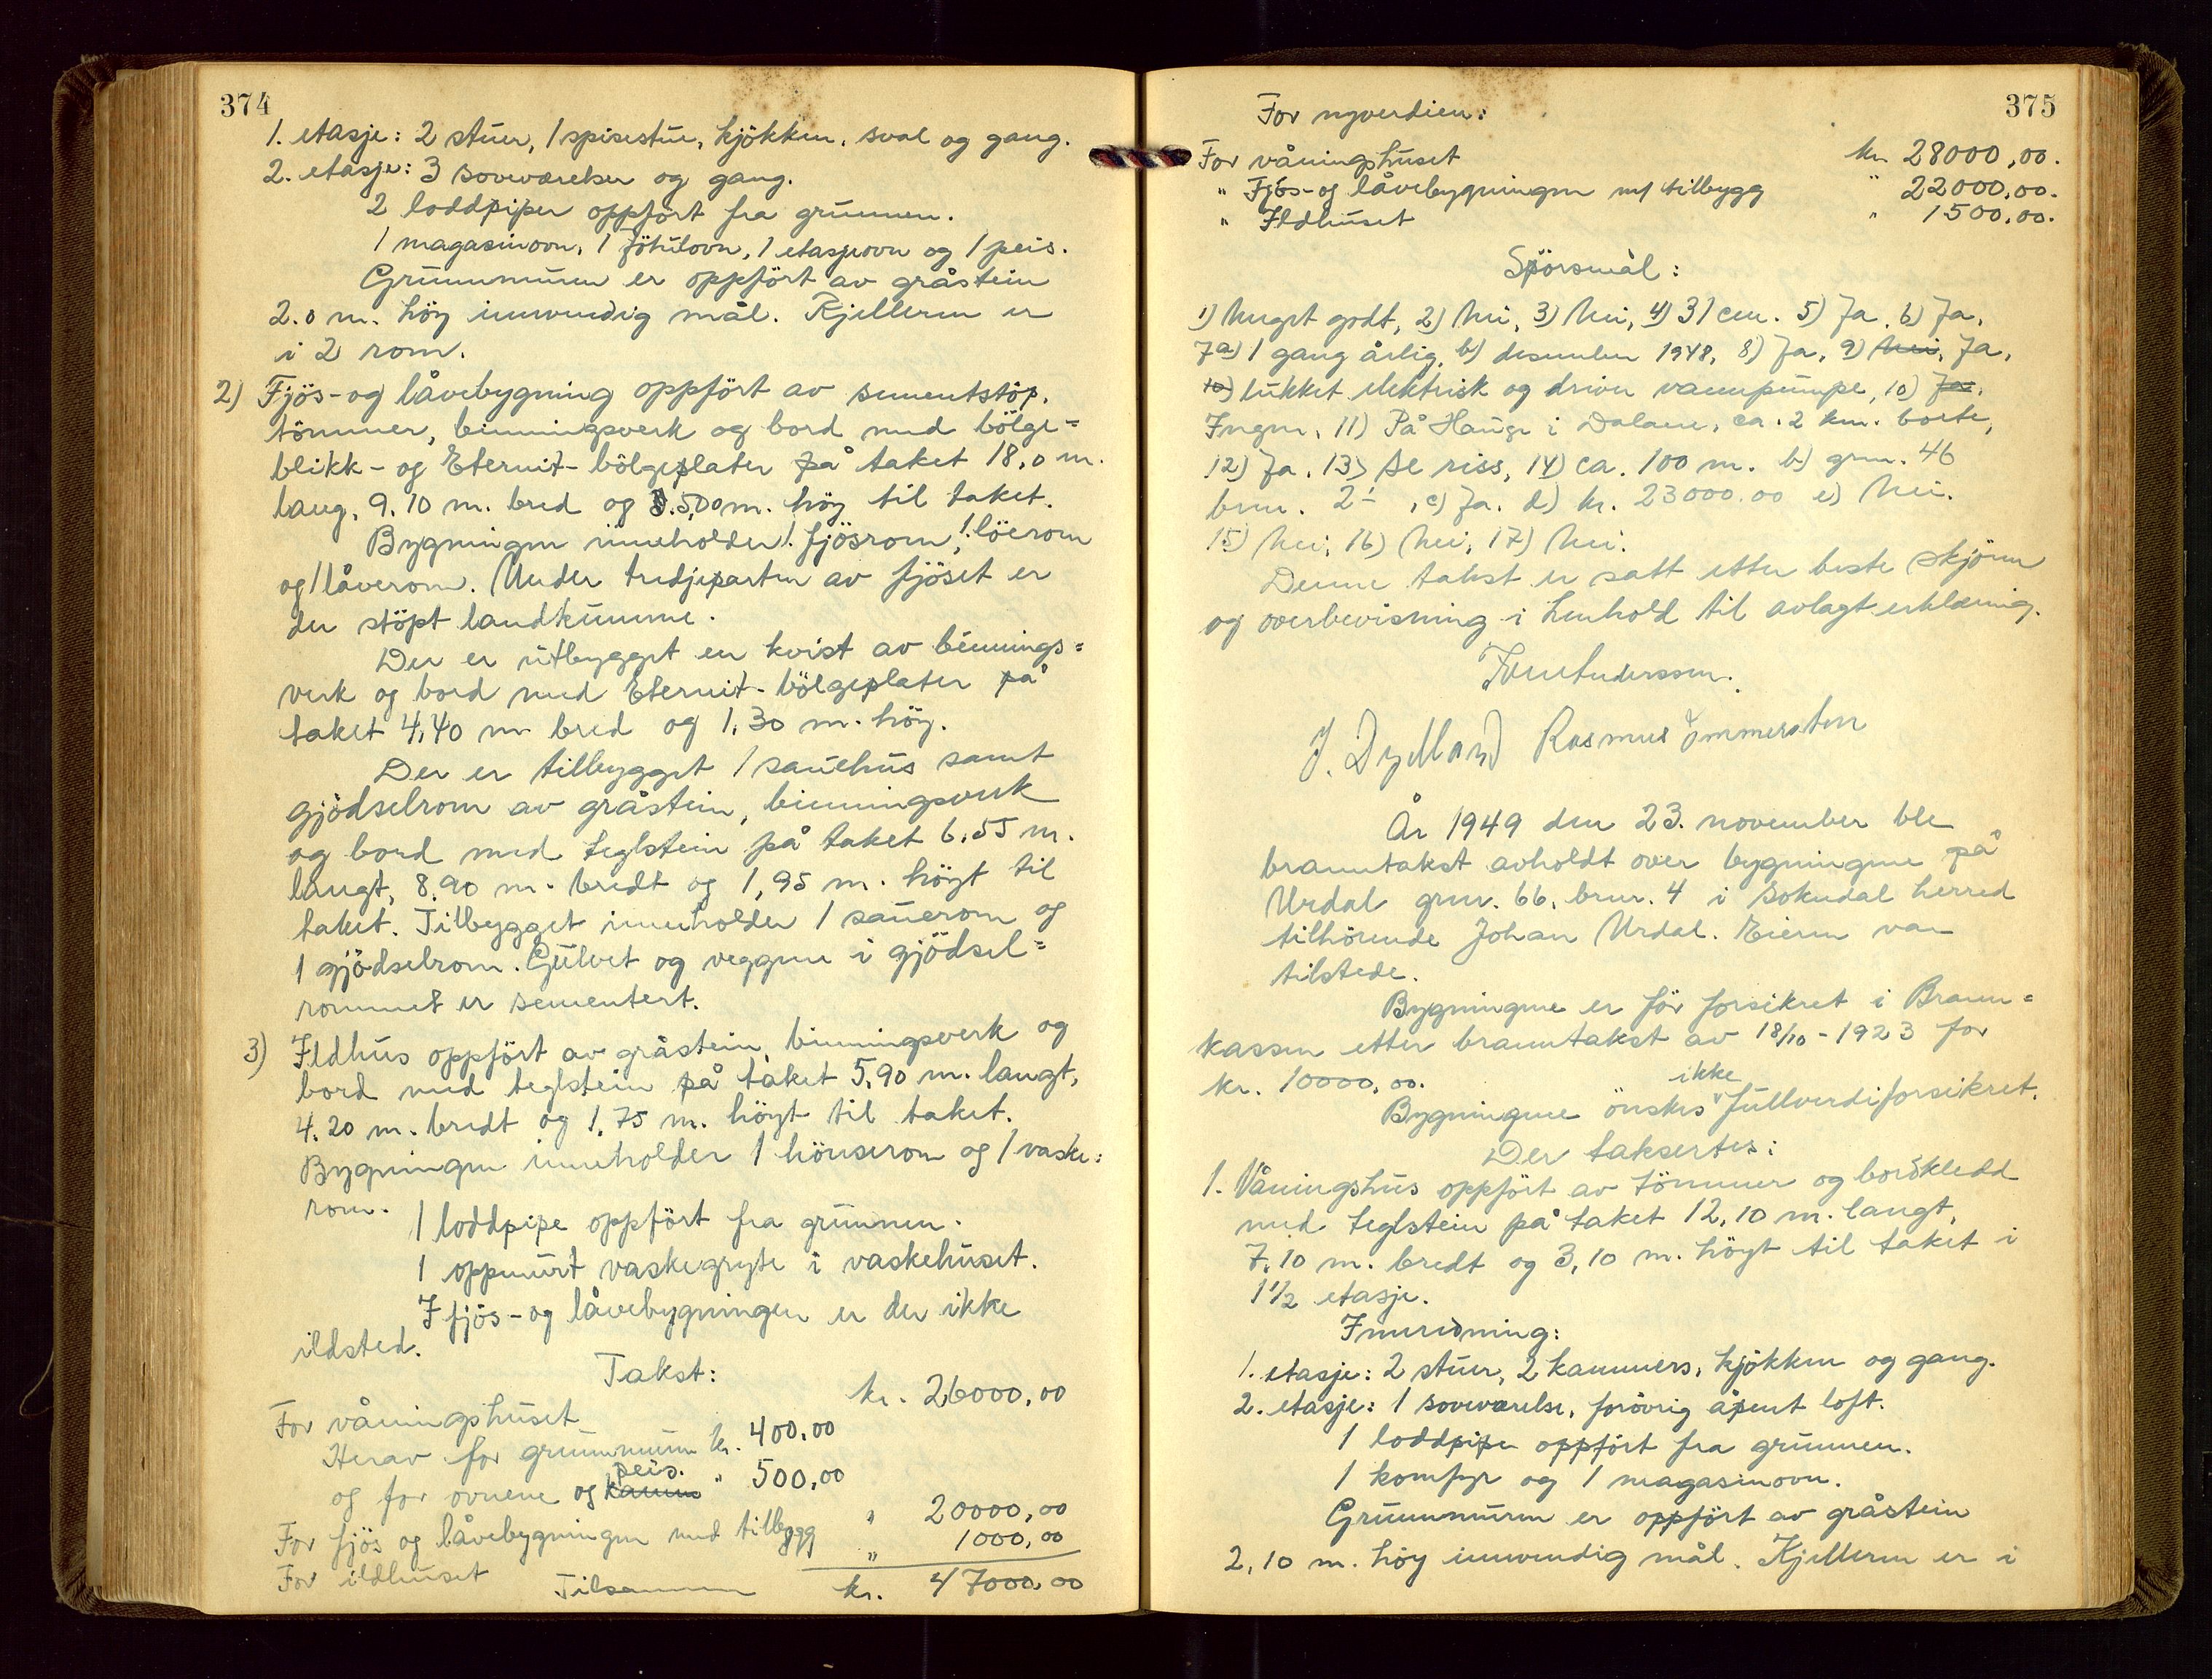 374
1. etasje: 2 stuer, 1 spisestue, kjökken, sval og gang.
2. etasje: 3 soveværelser og gang.
2 loddpiper oppfört fra grunnen.
1 magasinovn, 1 Jötulovn, 1 etasjeovn og 1 peis.
Grunnmuren er oppfört av gråstein
2.0 m. höy innvendig mål. Kjelleren er
i 2 rom.
2) Fjös- og låvebygning oppfört av sementstöp,
tömmer, binningsverk og bord med bölge=
blikk- og Eternit-bölgeplater på taket 18,0 m.
lang, 9.10 m. bred og 5,00 m. höy til taket.
Bygningen inneholder 1 fjösrom, 1 löerom
og 1 låverom. Under tredjeparten av fjöset er
der stöpt landkumme.
Der er utbygget en kvist av binnings=
verk og bord med Eternit-bölgeplater på
taket 4,40 m bred og 1,30 m. höy.
Der er tilbygget 1 sauehus samt
gjödselrom av gråstein, binningsverk
og bord med teglstein på taket 6,55 m.
langt, 8.90 m. bredt og 1,95 m. höyt til
taket. Tilbygget inneholder 1 sauerom og
1 gjödselrom. Gulvet og veggene i gjödsel=
rommet er sementert.
3) Ildhus oppfört av gråstein, binningsverk og
bord med teglstein på taket 5.90 m. langt,
4.20 m. bredt og 1.75 m. höyt til taket.
Bygningen inneholder 1 hönserom og 1 vaske=
rom.
1 loddpipe oppfört fra grunnen.
1 oppmurt vaskegryte i vaskehuset.
I fjös- og låvebygningen er der ikke
ildsted.
Takst:
For våningshuset kr. 26000,00
Herav for grunnmuren kr. 400,00
og for ovnene og peis. " 500,00
For fjös og låvebygningen med tilbygg " 20000,00
For ildhuset " 1000,00
Tilsammen kr. 47000,00
375
For nyverdien:
For våningshuset kr. 28000,00.
" Fjös- og låvebygningen m/ tilbygg " 22000,00.
" Ildhuset " 1500,00.
Spörsmål:
1) Meget godt, 2) Nei, 3) Nei, 4) 31 cm. 5) Ja, 6) Ja,
7a) 1 gang årlig, b) desember 1948, 8) Ja, 9) Nei, Ja,
10) lukket elektrisk og driver vannpumpe, 10) Ja.
Ingen, 11) På Hauge i Dalane, ca. 2 km. borte,
12) Ja, 13) Se riss, 14) ca. 100 m. b) gnr. 46
bnr. 2, c) Ja. d) kr. 23000.00 e) Nei.
15) Nei, 16) Nei, 17) Nei.
Denne takst er satt etter beste skjönn
og overbevisning i henhold til avlagt erklæring.
J. Dydland Rasmus Immerstein
År 1949 den 23. november ble
branntakst avholdt over bygningene på
Urdal gnr. 66, bnr. 4 i Sokndal herred
tilhörende Johan Urdal. Eieren var
tilstede.
Bygningene er för forsikret i Brann=
kassen etter branntakst av 18/10-1923 for
kr. 10000,00.
Bygningene önskes ikke fullverdiforsikret.
Der taksertes:
1. Våningshus oppfört av tömmer og bordkledd
med teglstein på taket 12,10 m. langt,
7,10 m. bredt og 3,10 m. höyt til taket i
1 1/2 etasje.
Innredning:
1. etasje: 2 stuer, 2 kammers, kjökken og gang.
2. etasje: 1 soveværelse, forövrig åpent loft.
1 loddpipe oppfört fra grunnen.
1 komfyr og 1 magasinovn.
Grunnmuren er oppfört av gråstein
2,10 m. höy innvendig mål. Kjelleren er i